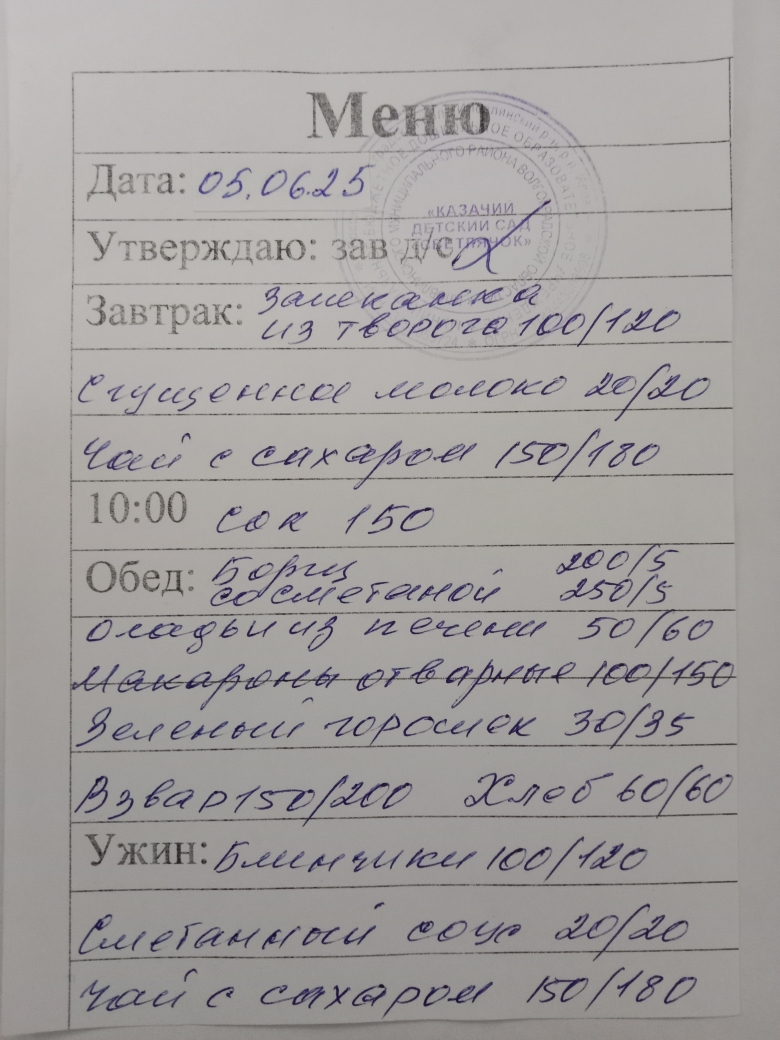 Меню
Дата: 05.06.25
«КАЗАЧИЙ
ДЕТСКИЙ САД
Утверждаю: зав д/с
Завтрак: Запеканка
из творога 100/120
Сгущенное молоко 20/20
Чай с сахаром 150/180
10:00 Сок 150
Обед: Борщ 200/5
со сметаной 250/5
Оладьи из печени 50/60
Макароны отварные 100/150
Зеленый горошек 30/35
Взвар 150/200 Хлеб 60/60
Ужин: Блинчики 100/120
Сметанный соус 20/20
Чай с сахаром 150/180